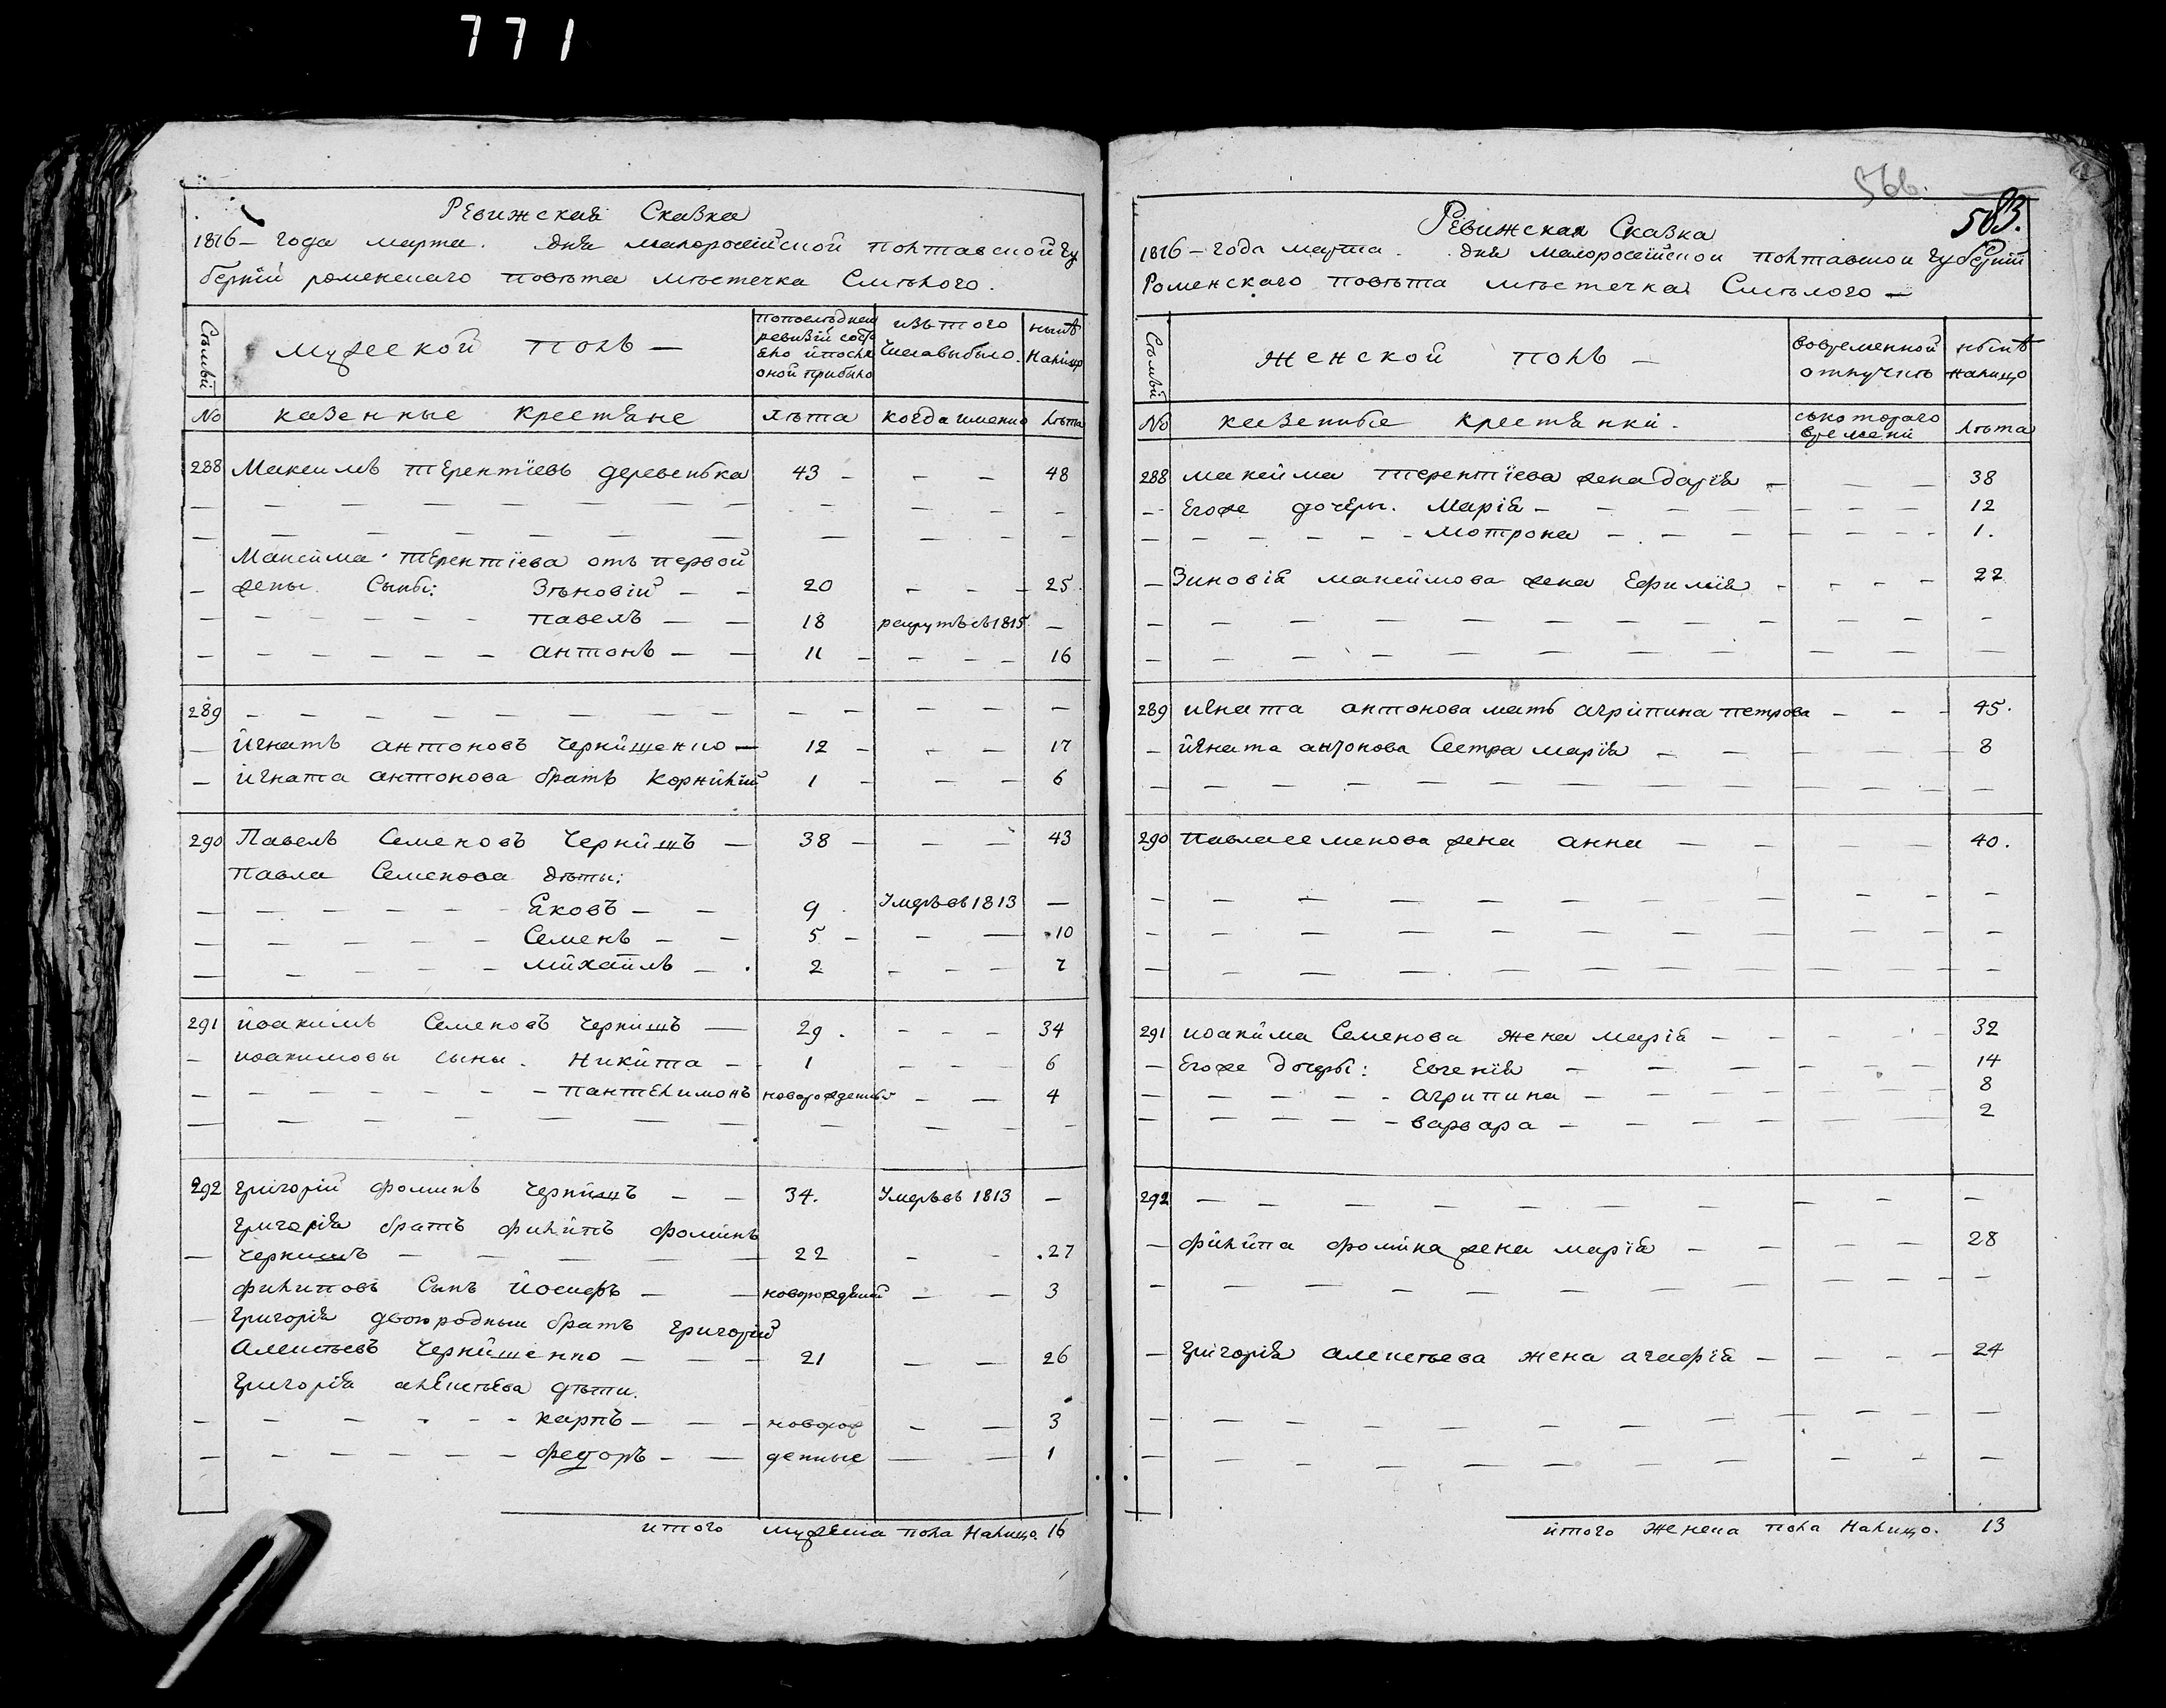 771
566.
583.
Ревижская Сказка
1816 – года марта . дня малоросѣйской полтавской гу
бернїй роменскаго повѣта мѣстечка Смѣлого .
Сѣмьи
мужеской полъ –
попослѣдней ревизїй состо яло ипослѣ оной прибыло
изътого числавыбыло.
нынѣ налицо
№ казенные крестяне лѣта когда именно лѣта
288 Максимъ терентїевъ деревенька 43 – – – 48
Максима терентїева отъ первой
жены. Сыны: Зѣновїй – – 20 – – – 25.
– – – – – – павелъ – – 18 рекрутъвъ1815 –
– – – – – – антонъ – – 11 – – – – 16
289 – – – – – – – – – – – – –
– йгнатъ антоновъ Чернйшенко – 12 – – – 17
– йгната антонова братъ Корнйлїй 1 – – – 6
290 Павелъ Семеновъ Чернйшъ – 38 – – – 43
Павла Семенова дѣты:
– – – – – – Яковъ – – 9 Умеръвъ1813 –
– – – – – – Семенъ – – 5 – – – 10
– – – – – – мйхайлъ – . 2 – – – 7
291 йоакимъ Семеновъ Чернйшъ – 29 . – – – 34
– иоакимовы сыны . Никйта – 1 – – – 6
– – – – – – – пантелимонъ новорожденны – – 4
292 Григорїй Фоминъ Чернйшъ – – 34. Умеръвъ 1813 –
Григорїя братъ филйпъ Фомйнъ
– Чернишъ – – – – – 22 – – 27
филиповъ Сынъ йосифъ – – новорожденый – – 3
– Григорїя двоюродным братъ Григорїй
Алексѣевъ Чернйшенко – – – 21 – – 26
Григорїя алексѣева дѣти.
– – – – – – карпъ – – – новорож – – 3
– – – – – – федоръ – – денные – – 1
итого мужеска пола Налицо. 16
Ревижская Сказка
1816 – года марта . . дня малоросѣйской полтавской губернїй
Роменскаго повѣта мѣстечка Смѣлого –
Сѣмьи
женской полъ –
вовременной отлучкѣ
нынѣ налицо
№ казенные крестянки . съкотораго времени лѣта
288 максйма терентїева жена дарїя – – – 38
– Егоже дочеры . Марїя – – – – – – – 12
– – – – – – мотрона – – – – – – – 1.
– Зиновїя максймова жена Ефимїя – – – – 22
289 игната антонова мать агрйпина петрова – – – 45.
– йгната антонова Сестра марїя – – – – 8
290 Павласеменова жена анна – – – – 40.
291 иоакйма Семенова жена марїя – – – – 32
– Егоже дочеры: Евгенїя – – – – – 14
– – – – – – агрипина – – – – – 8
– – – – – – варвара – – – – – 2
292 – – – – – – – – – –
– филйпа фомина жена марїя – – – – 28
– Григорїя алексѣева жена агафїя – – – – 24
йтого женска пола Налицо. 13